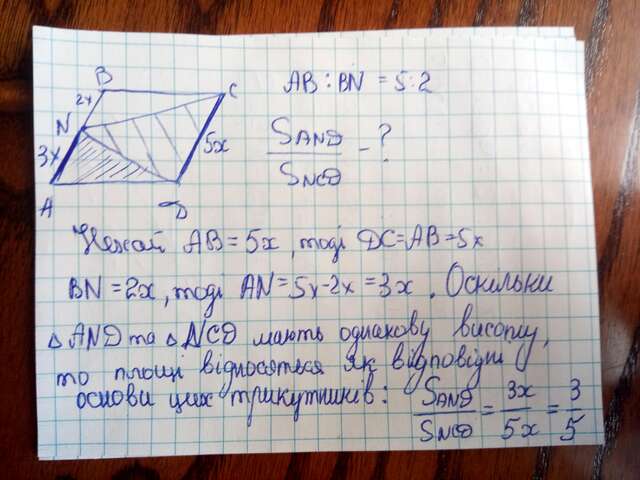 B
C
2x
N
3x
5x
A
D
AB : BN = 5:2
S AND / S NCD - ?
Нехай AB = 5x, тоді DC=AB=5x
BN = 2x, тоді AN = 5x-2x = 3x. Оскільки
△ AND та △ NCD мають однакову висоту,
то площі відносяться як відповідні
основи цих трикутників: S AND / S NCD = 3x / 5x = 3 / 5